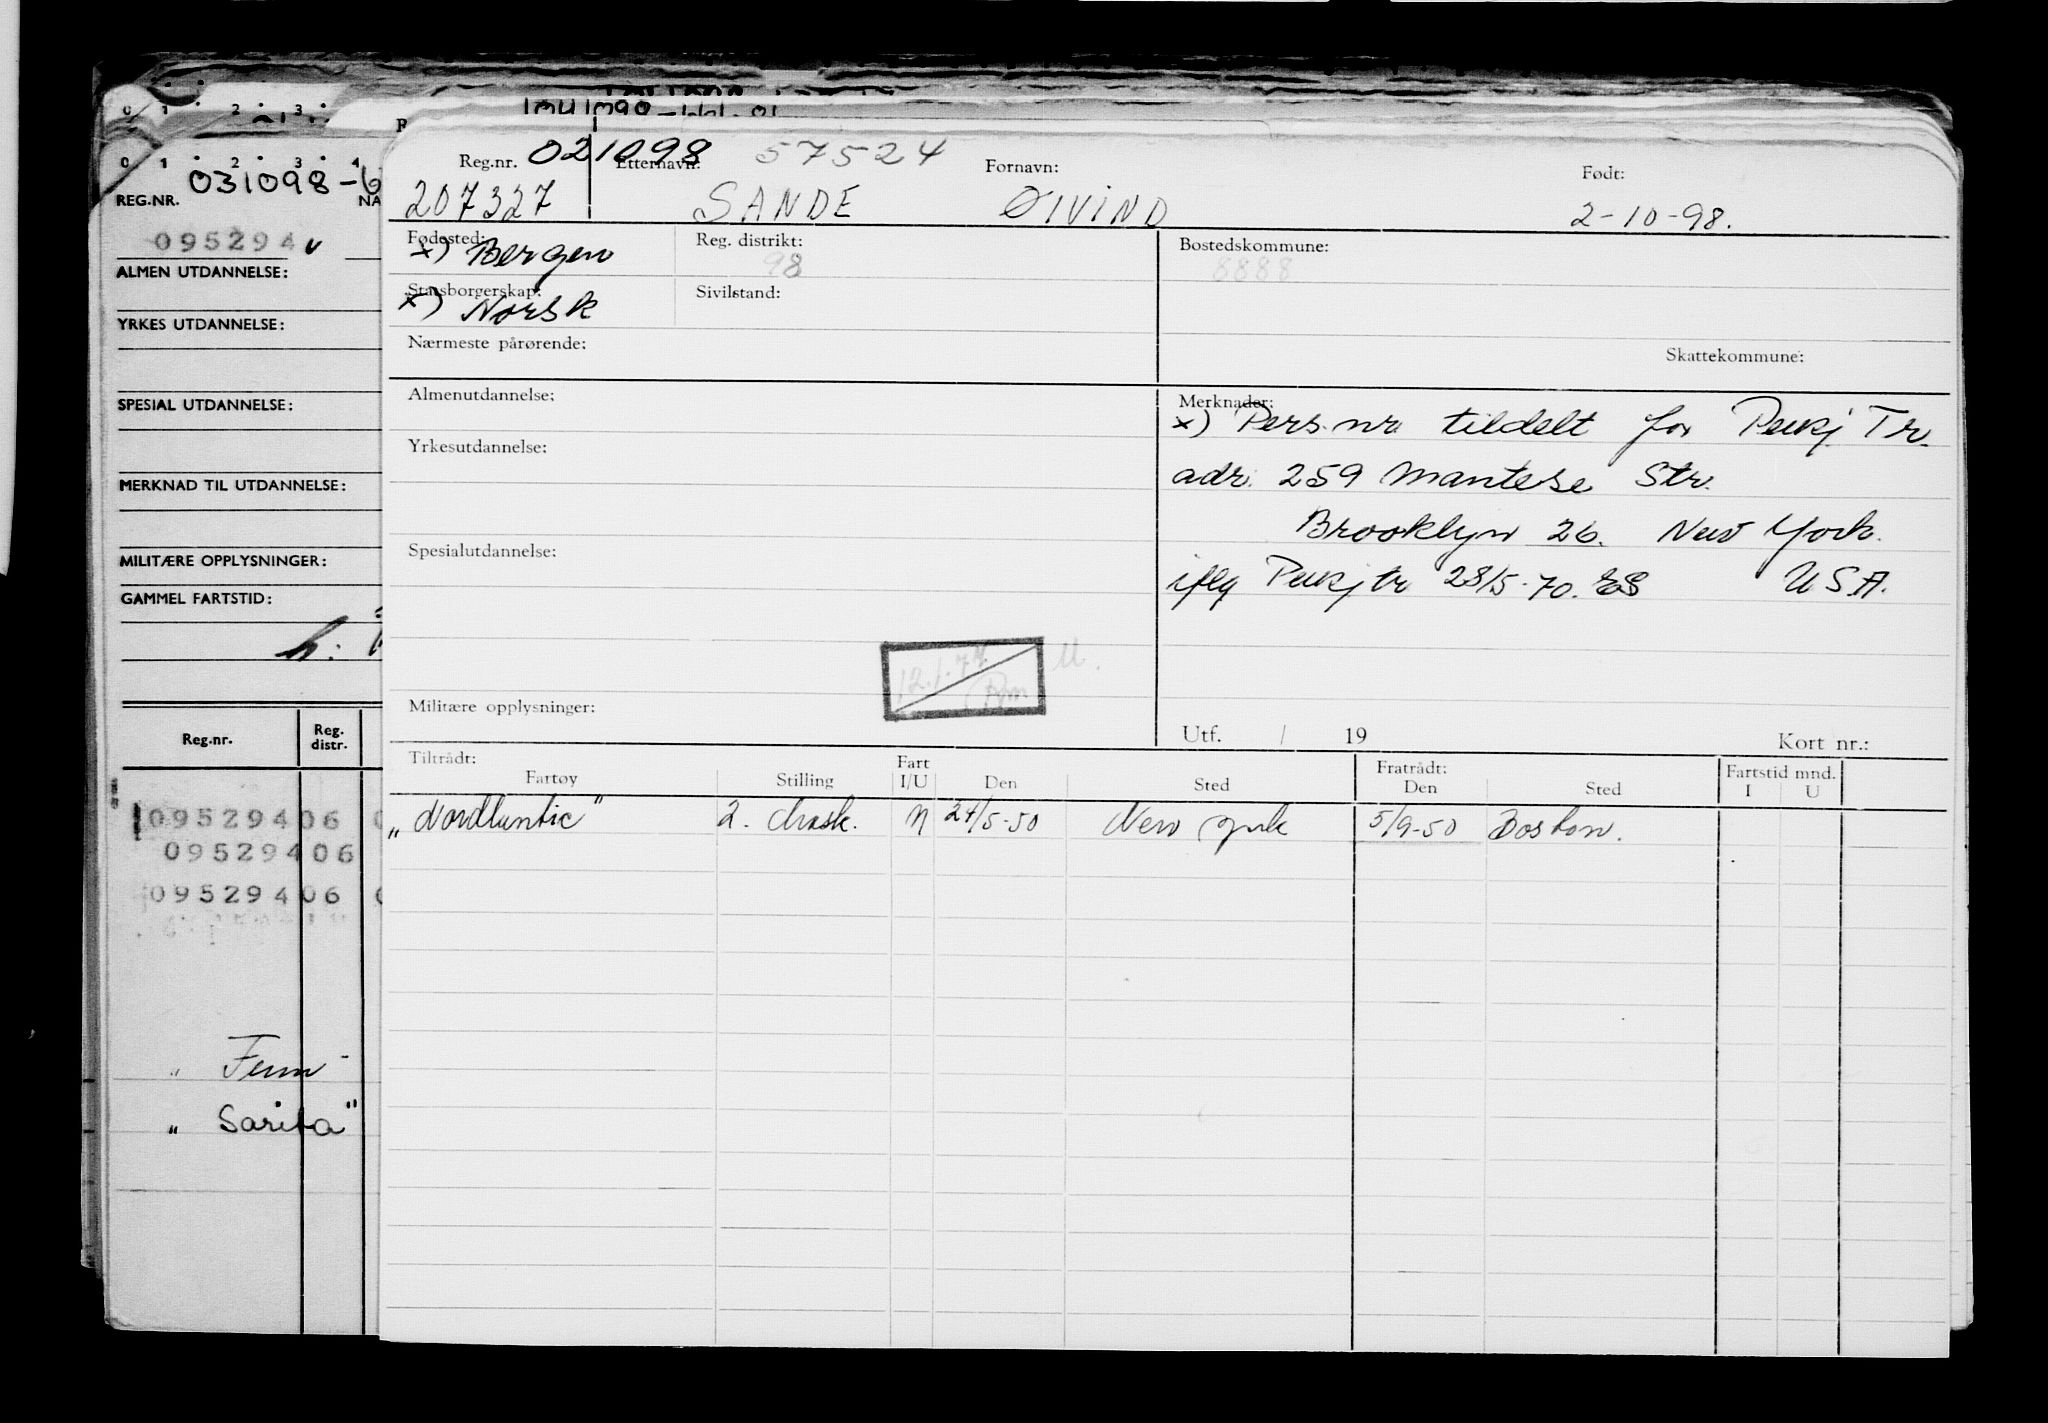 0 1 2 3
0 1 2 3 4
REG.NR. 031098-6
NA
095294
ALMEN UTDANNELSE:
YRKES UTDANNELSE:
SPESIAL UTDANNELSE:
MERKNAD TIL UTDANNELSE:
MILITÆRE OPPLYSNINGER:
GAMMEL FARTSTID:
h:
Reg.nr. Reg. distr.
09529406
09529406
09529406
" Fern"
" Sarita"
Reg.nr. 021098 Etternavn: 57524 Fornavn: Født:
207327 SANDE ØIVIND 2-10-98.
Fødested: x) Bergen Reg. distrikt: 98 Bostedskommune: 8888
Statsborgerskap: x) Norsk Sivilstand:
Nærmeste pårørende: Skattekommune:
Almenutdannelse: Merknader:
x) Pers.nr. tildelt for Peksj Tr.
Yrkesutdannelse:
adr. 259 Mantese Str.
Brooklyn 26. New York.
Spesialutdannelse:
iflg Peksj tr 28/5-70. ES USA.
12.1.77 M.
Militære opplysninger:
Utf. / 19 Kort nr.:
Tiltrådt: Fart Fratrådt: Fartstid mnd.
Fartøy Stilling I/U Den Sted Den Sted I U
"Nordlantic" 2. Mask. N 24/5-50 New York 5/9-50 Boston.